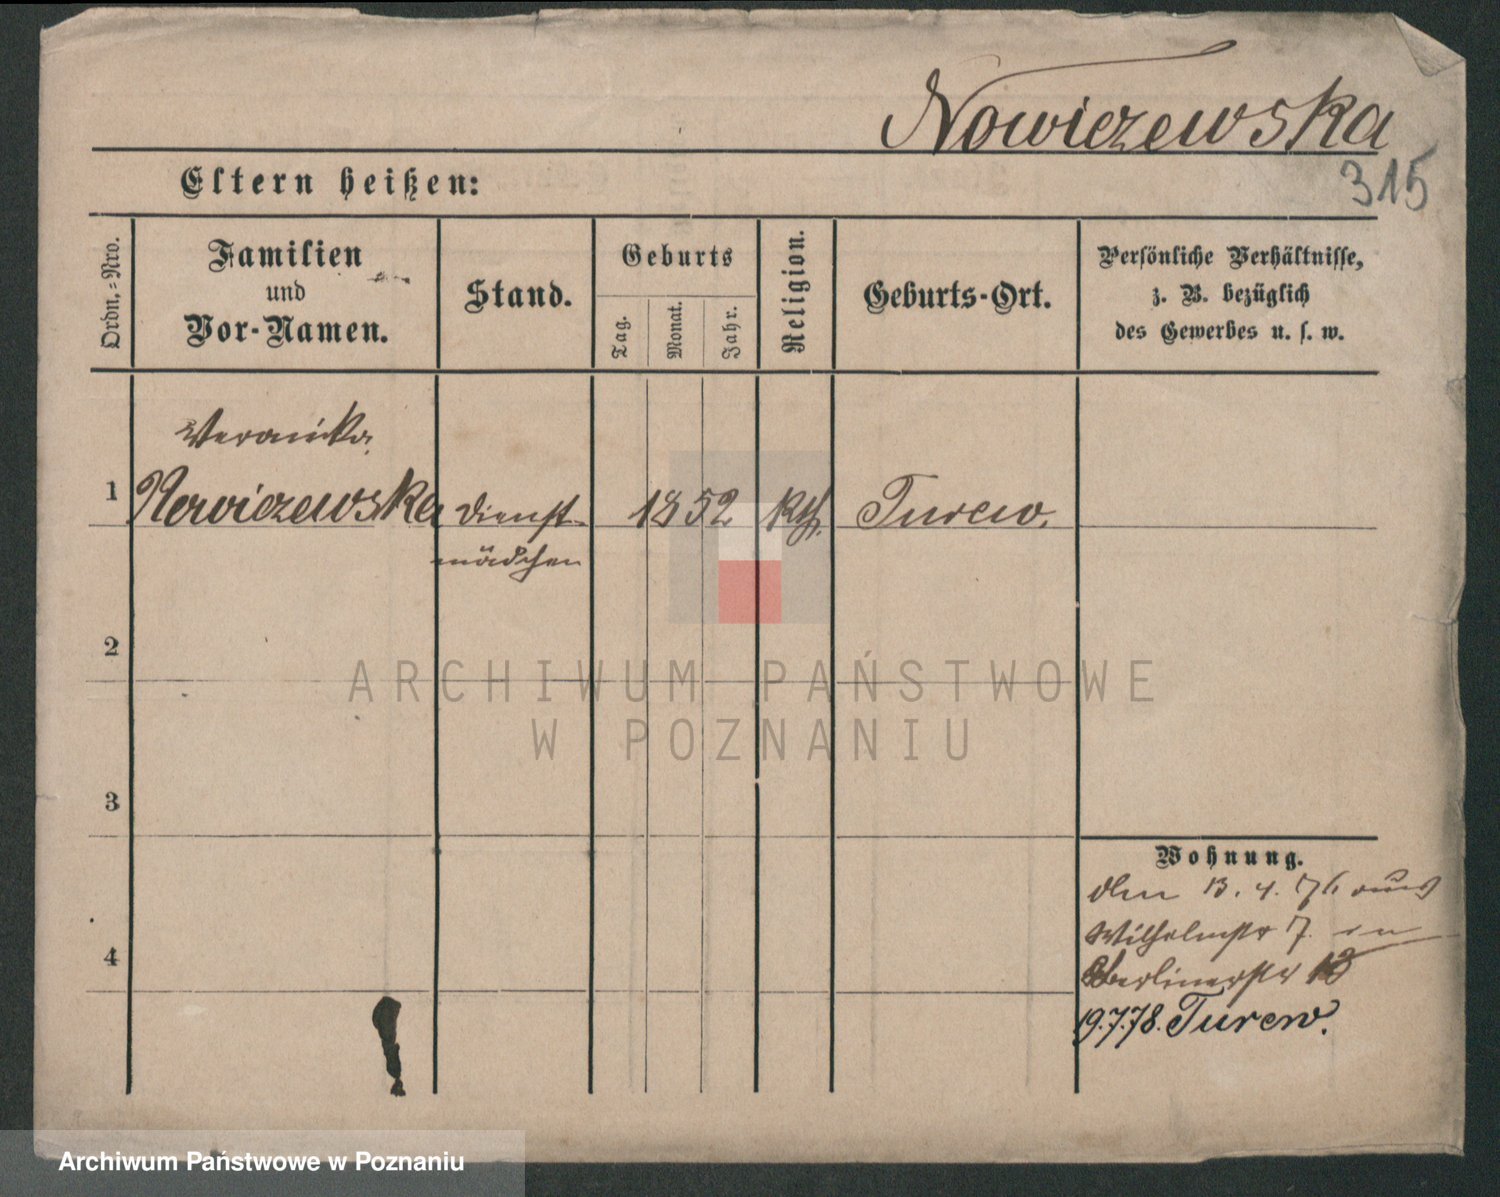 Nowiczewska
315
Eltern heißen:
Ordn.=Nro.
Familien
und
Vor-Namen.
Stand.
Geburts
Tag.
Monat.
Jahr.
Religion.
Geburts-Ort.
Persönliche Verhältnisse,
z. B. bezüglich
des Gewerbes u. s. w.
Veronika
1 Nowiczewska Dienst- 1852 kth. Turew.
mädchen
2
ARCHIWUM PAŃSTWOWE
W POZNANIU
3
Wohnung.
den 13. 4. 76 aus
Wilhelmstr 7. in
4
Berlinerstr 13
19.7.78. Turew.
Archiwum Państwowe w Poznaniu